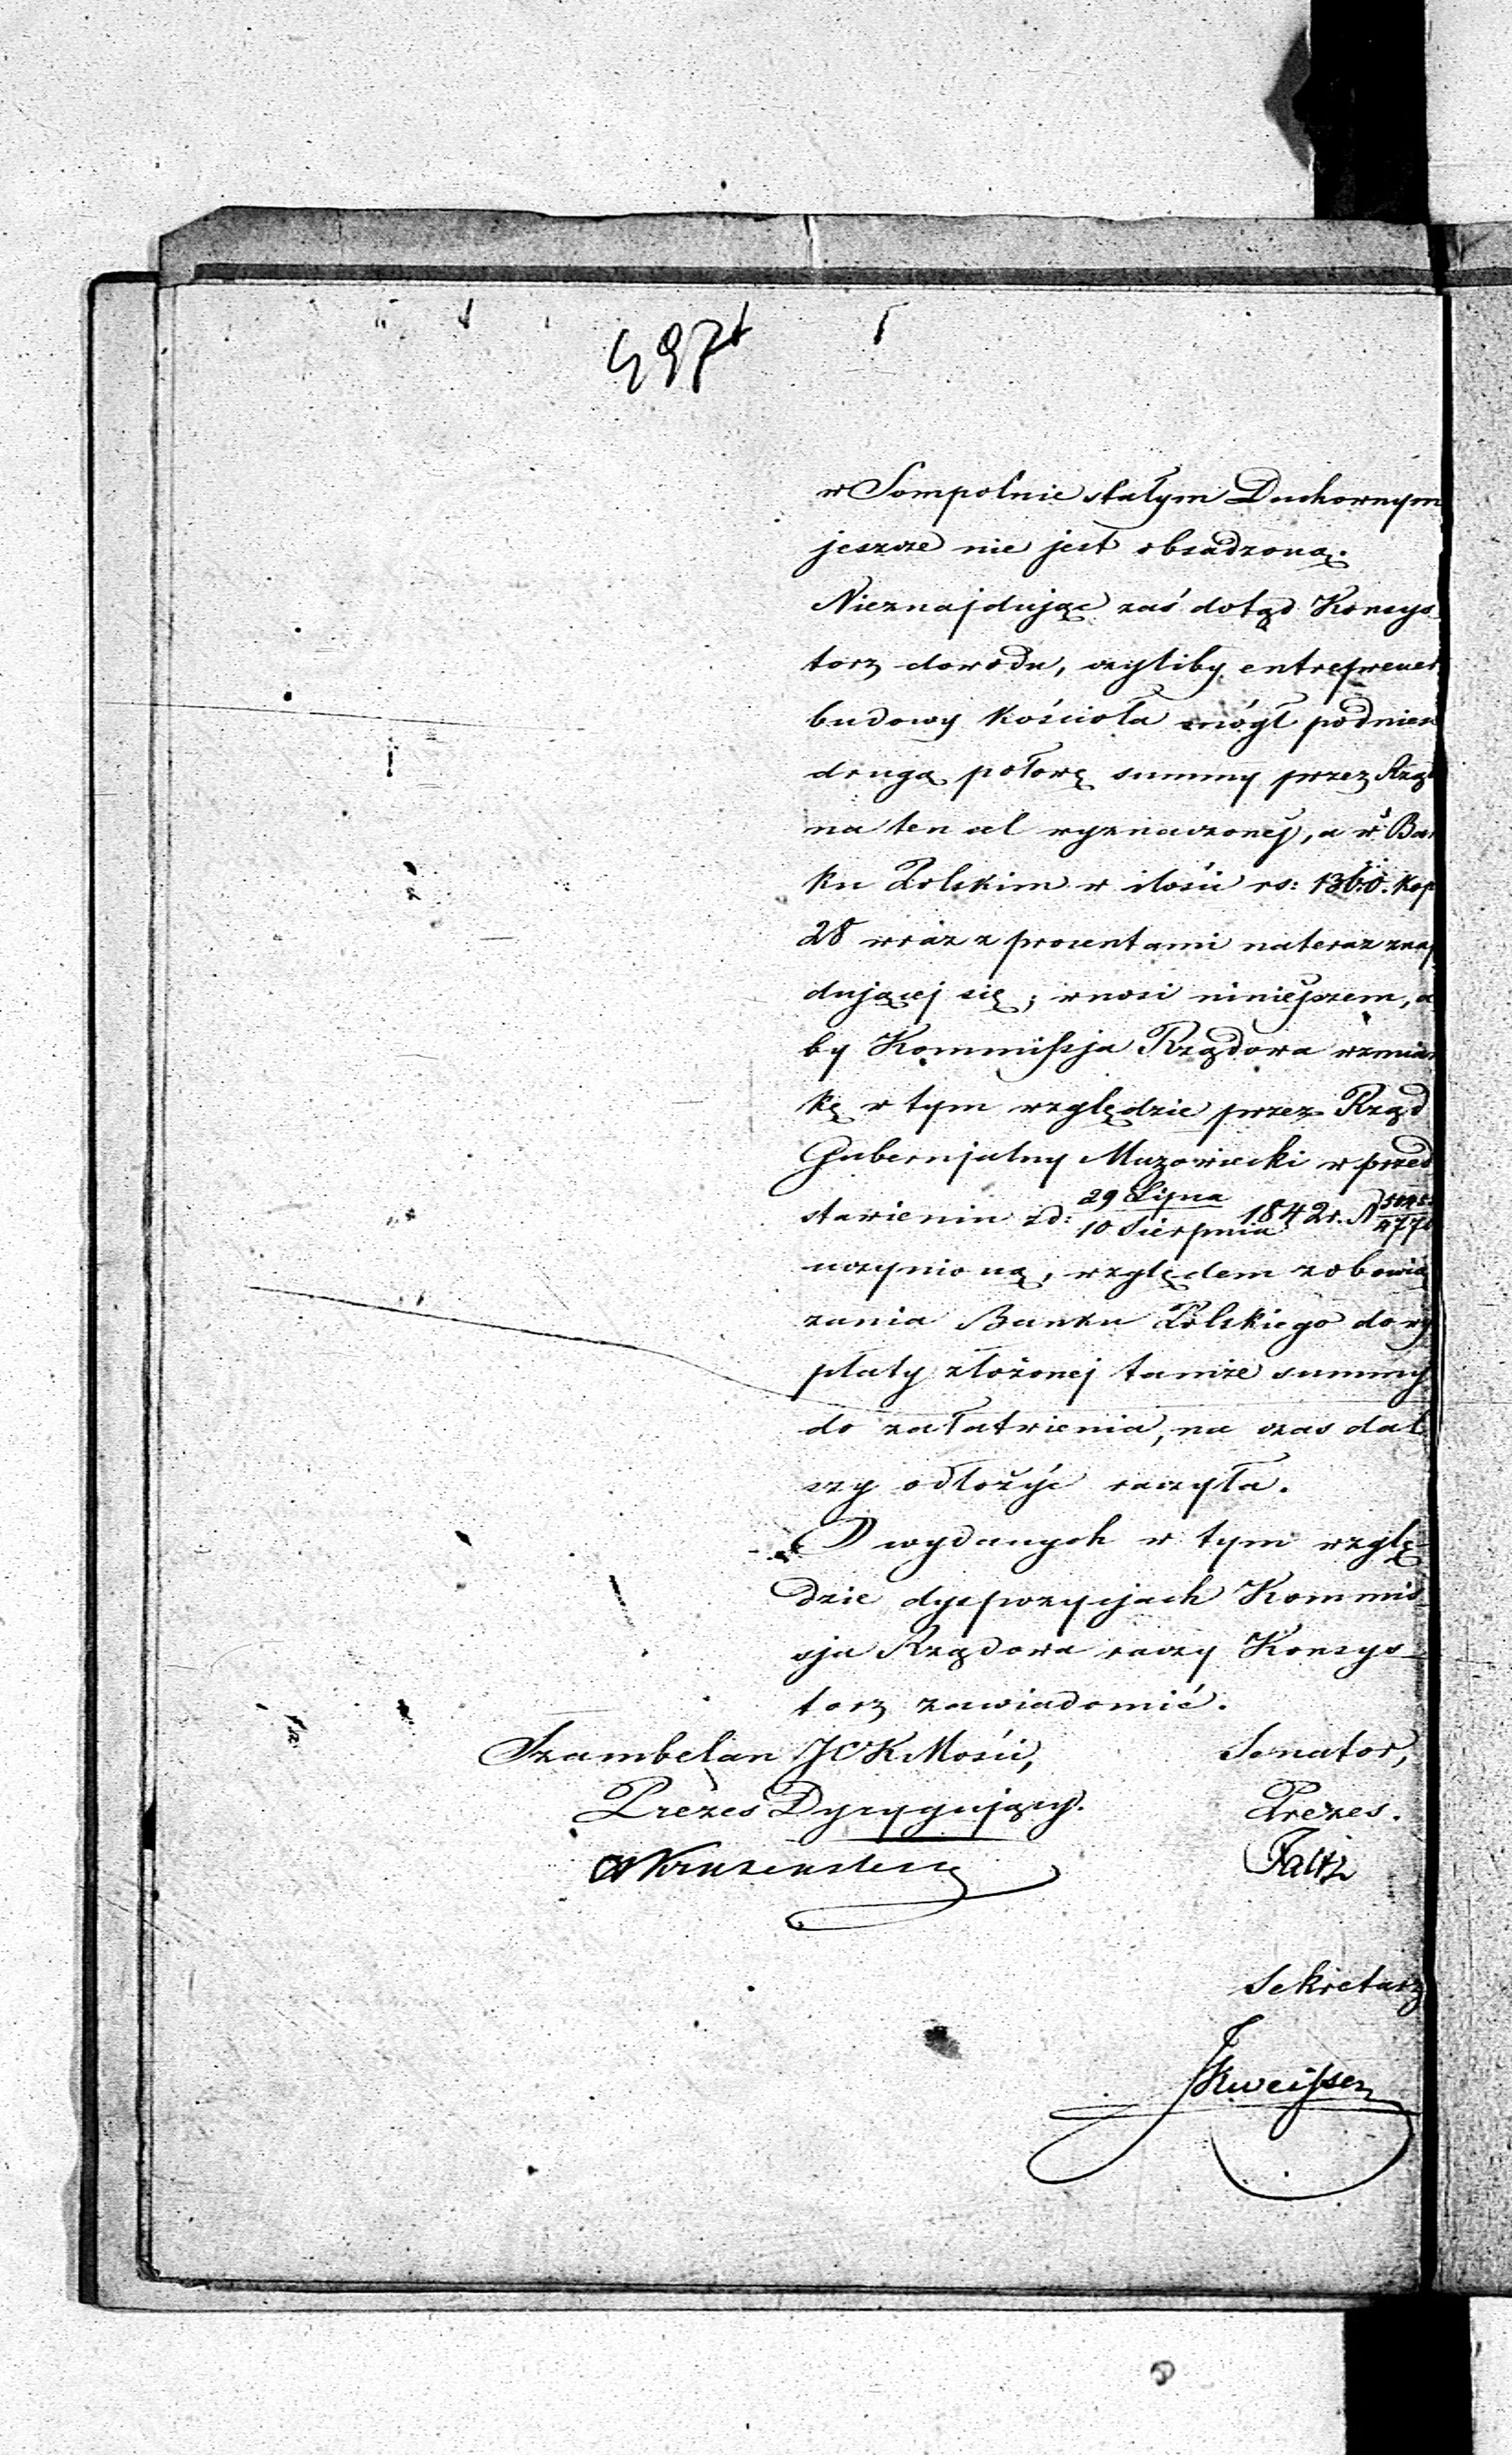 497
w Sompolnie stałym Duchownym
jeszcze nie jest obsadzoną.
Nieznajdując zaś dotąd Konsys
torz dowodu, czyliby entreprener
budowy Kościoła mógł podnieś
drugą połowę summy przez Rząd
na ten cel wyznaczonej, a w Ban
ku Polskim w ilości rs: 1360. kop
28 wraz z procentami nateraz znaj
dującej się; wnosi niniejszem, a
by Kommissja Rządowa wzmian
kę w tym względzie przez Rząd
Gubernjalny Mazowiecki w przed
stawieniu z d: 29 Lipca / 10 Sierpnia 1842 r. N
uczynioną, względem zobowią
zania Banku Polskiego do wy
płaty złożonej tamże summy
do załatwienia, na czas dal
szy odłożyć raczyła.
O wydanych w tym wzglę
dzie dyspozycjach Kommis
sja Rządowa raczy Konsys_
torz zawiadomić.
Szambelan JCK Mości, Senator,
Prezes Dyrygujący. Prezes.
Kruzenstern Faltz
Sekretarz